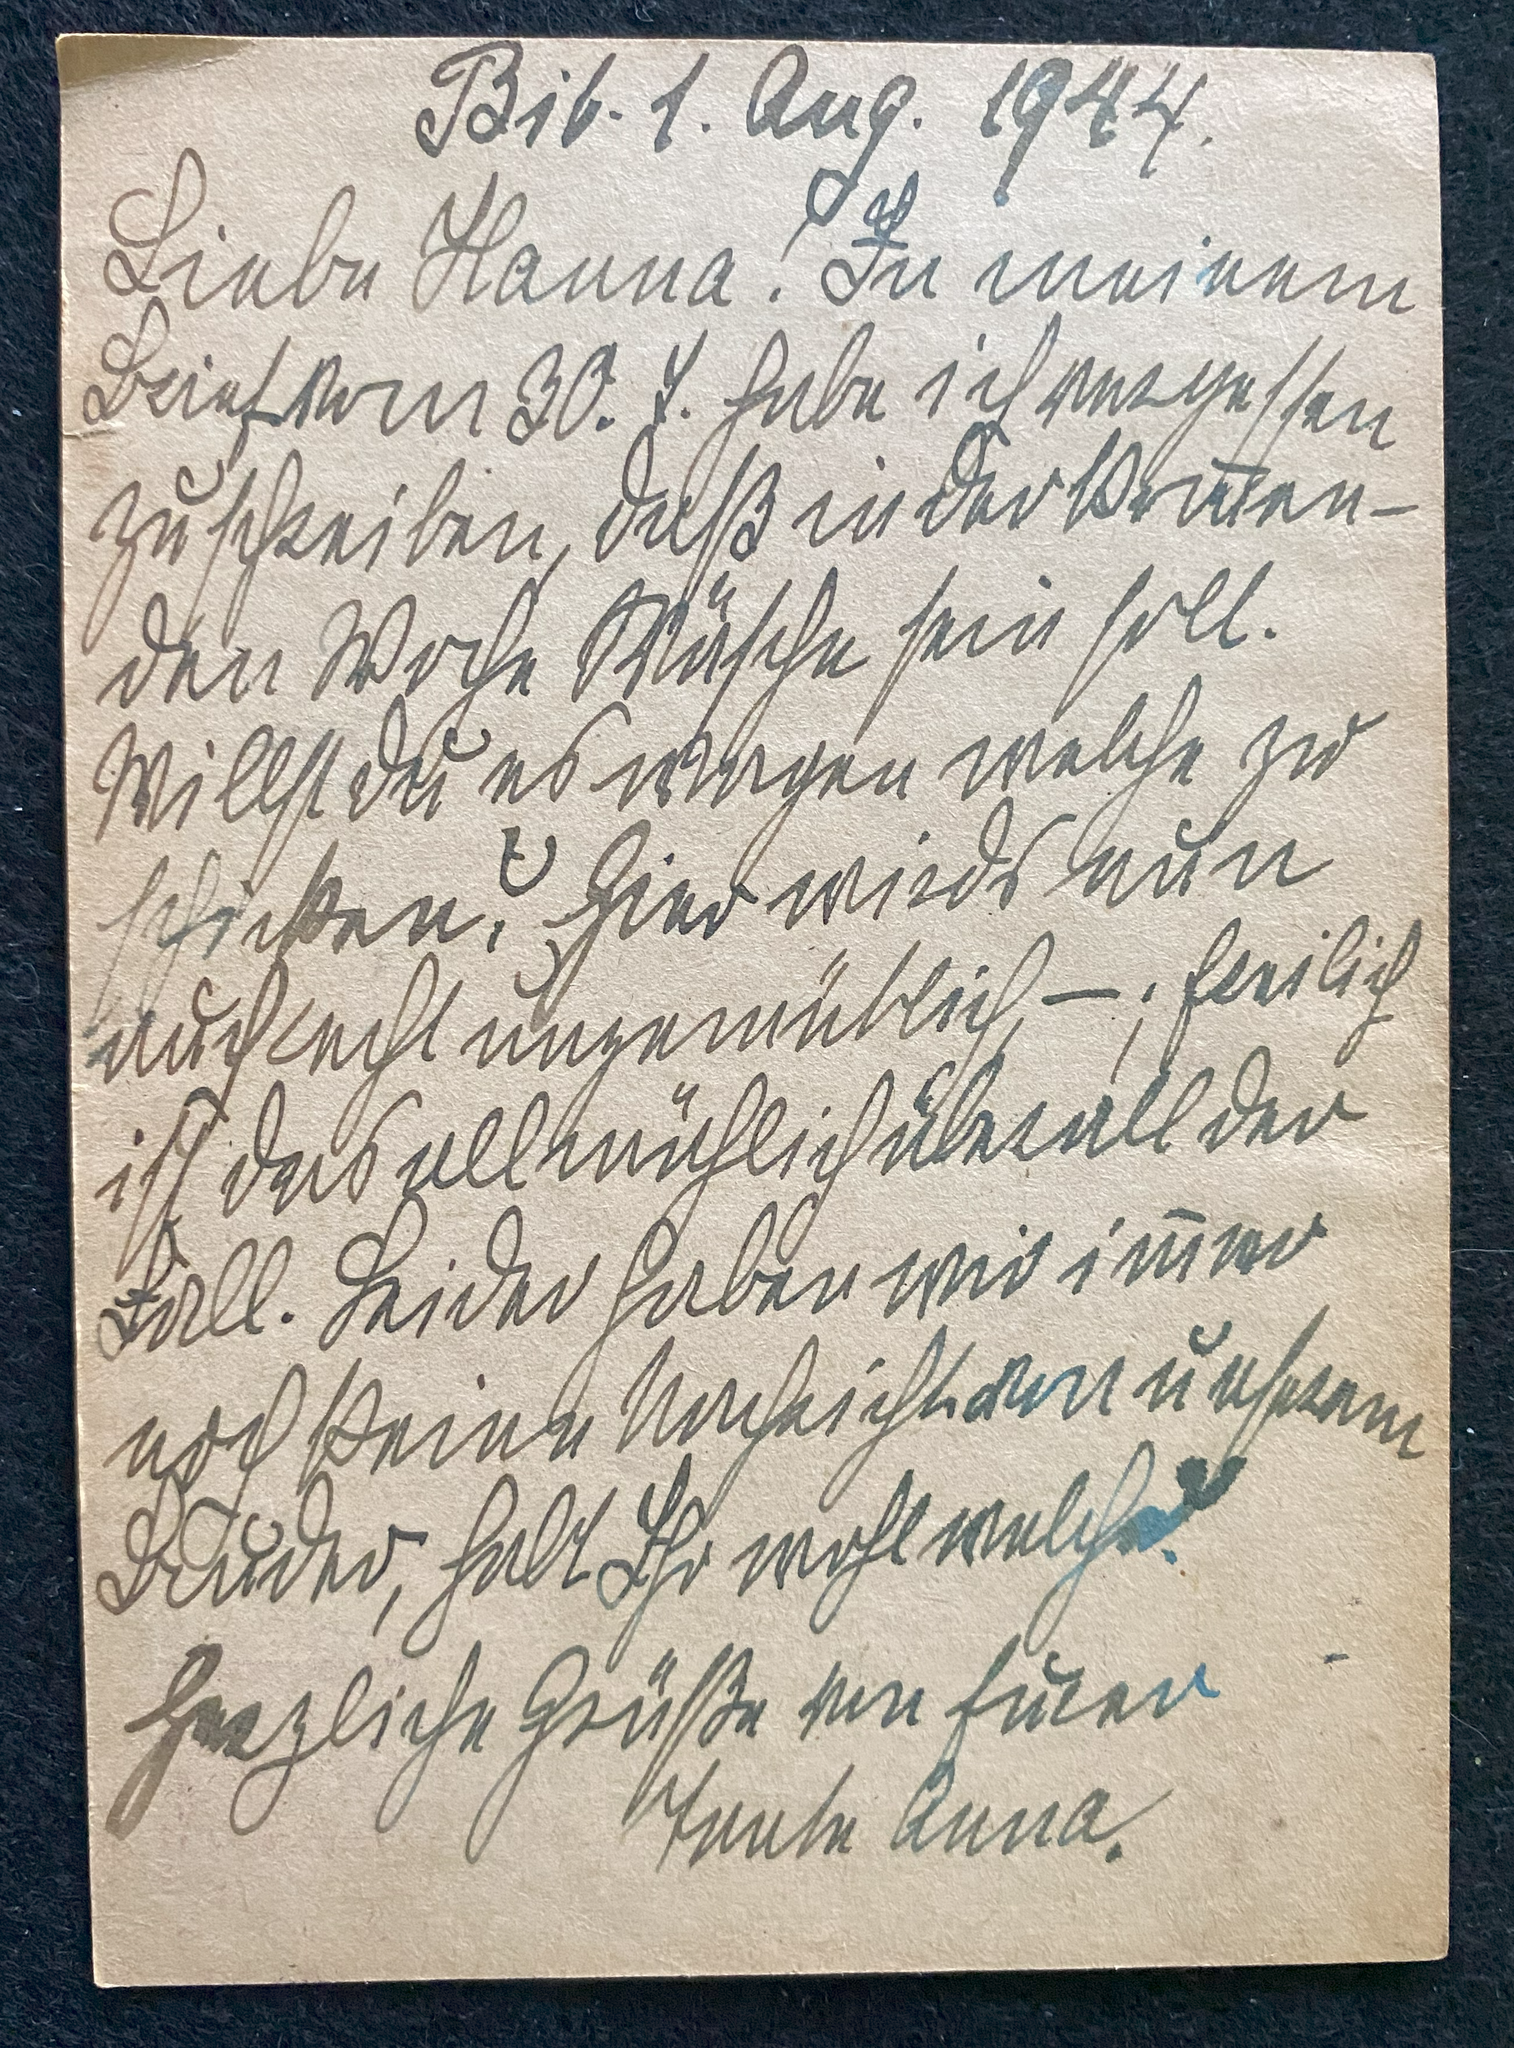 Bib. 1. Aug. 1944.
Liebe Hanna! In meinem
Brief vom 30. 7. habe ich vergessen
zu schreiben, daß in der kom̅en-
den Woche Wäsche sein soll.
Willst du es wagen welche zu
schicken? Hier wirds nun
auch recht ungemütlich, – ; freilich
ist das allmählich überall der
Fall. Leider haben wir im̅er
noch keine Nachricht von unserem
Bruder, habt Ihr wohl welche?
Herzliche Grüße von Eurer
Tante Anna.